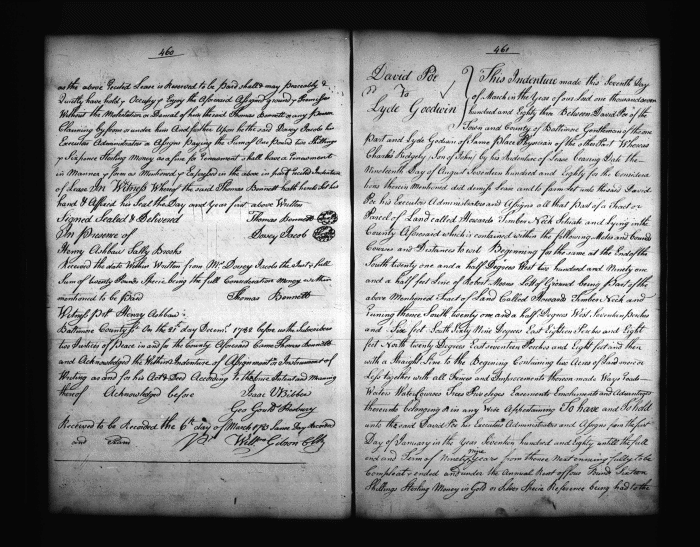 460
as the above Recited Lease is Reserved to be Paid shall & may Peaceably &
Quietly have hold & Occupy & Enjoy the Aforesaid Assigned ground & Premises
Without the Molestation or Denial of him the said Thomas Bennett or any Person
Claiming by from or under him And further Upon he the said Dowey Jacob his
Executors Administrators or Assigns Paying the Sum of One Pound two Shillings
& Sixpence Sterling Money as a fine for
in Manner & form as Mentioned & Expressed in the above in part recited Indenture
of Lease In Witness Whereof the said Thomas Bennett hath hereto Set his
hand & Affixed his Seal the Day and Year first above Written
Signed Sealed & Delivered Thomas Bennett
In Presence of Dowey Jacob
Henry Ashbaw Sally Brooks
Received the date Within Written from Mr. Dowey Jacob the Just & full
Sum of twenty Pounds Specie being the full Consideration Money within
mentioned to be Paid Thomas Bennett
Witness Pst. Henry Ashbaw
Baltimore County Ss. On the day Decemr. 1782 before us the Subscribers
two Justices of Peace in and for the County Aforesaid Come Thomas Bennett
and Acknowledged the Within Indenture of Assignment or Instrument of
Writing as and for his Act & Deed According to the true Intent and Meaning
thereof Acknowledged before Isaac VBibber
Geo Gould Presbury
Received to be Recorded the 6th. day of March 1783 Same Day Recorded
and Examd. Pr. Willm. Gibson Clk
461
David Poe
to
Lyde Goodwin
This Indenture made this Seventh Day
of March in the Year of our Lord one thousand seven
hundred and Eighty three Between David Poe of the
Town and County of Baltimore Gentleman of the one
Part and Lyde Godwin of Same Place Physician of the other Part Whereas
Charles Ridgely Son of John by his Indenture of Lease bearing Date the
Nineteenth Day of August Seventeen hundred and Eighty for the Considera
tions therein Mentioned did demise Lease and to farm let unto the said David
Poe his Executors Administrators and Assigns all that Part of a Tract or
Parcel of Land called Howards Timber Neck Situate and lying in the
County Aforesaid which is contained within the following Metes and Bounds
Courses and Distances to wit Beginning for the same at the End of the
South twenty one and a half Degrees West two hundred and Ninety one
and a half feet line of Robert Moons Lott of Ground being Part of the
above Mentioned Tract of Land Called Howards Timber Neck and
runing thence South twenty one and a half Degrees West Seventeen Perches
and Six feet South Sixty Nine Degrees East Eighteen Perches and Eight
feet North twenty Degrees East seventeen Perches and Eight feet and then
with a Straight Line to the Begining Containing two Acres of Land more or
Less together with all Fences and Improvements thereon made Ways Roads
Waters Watercourses Trees Priviledges Easements Emoluments and Advantages
thereunto belonging or in any Wise Appertaining To have and to hold
unto the said David Poe his Executors Administrators and Assigns from the first
Day of January in the Year Seventeen hundred and Eighty untill the full
end and Term of Ninety nine Years from thence next ensuing fully to be
Compleat & ended and under the Annual Rent of four Pound Sixteen
Shillings Sterling Money in Gold or Silver Specie Reference being had to the